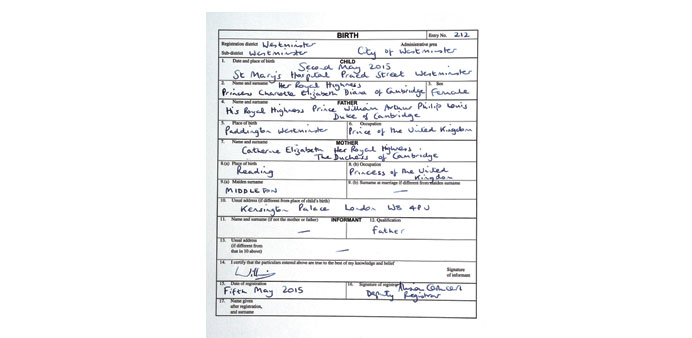 BIRTH Entry No. 212
Registration district Westminster Administrative area
Sub-district Westminster City of Westminster
1. Date and place of birth CHILD
Second May 2015
St Mary's Hospital Praed Street Westminster
2. Name and surname Her Royal Highness 3. Sex
Princess Charlotte Elizabeth Diana of Cambridge Female
4. Name and surname FATHER
His Royal Highness Prince William Arthur Philip Louis
Duke of Cambridge
5. Place of birth 6. Occupation
Paddington Westminster Prince of the United Kingdom
7. Name and surname MOTHER
Catherine Elizabeth Her Royal Highness
The Duchess of Cambridge
8.(a) Place of birth 8. (b) Occupation
Reading Princess of the United Kingdom
9.(a) Maiden surname 9. (b) Surname at marriage if different from maiden surname
MIDDLETON —
10. Usual address (if different from place of child's birth)
Kensington Palace London W8 4PU
11. Name and surname (if not the mother or father) INFORMANT 12. Qualification
— Father
13. Usual address
(if different from
that in 10 above) —
14. I certify that the particulars entered above are true to the best of my knowledge and belief
Signature
of informant
15. Date of registration 16. Signature of registrar
Fifth May 2015 Deputy Registrar
17. Name given
after registration,
and surname